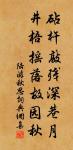 砧杵敲残深巷月
井梧摇落故园秋
陆游秋思词典网集